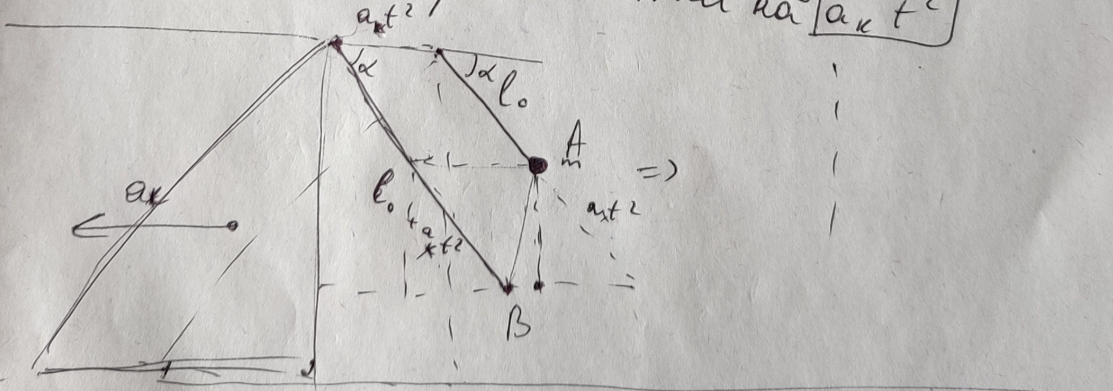 на aₖt²
aₖt²
α
α
l₀
A
m
aₖ
⇒
l₀ + aₖt²
aₖt²
B